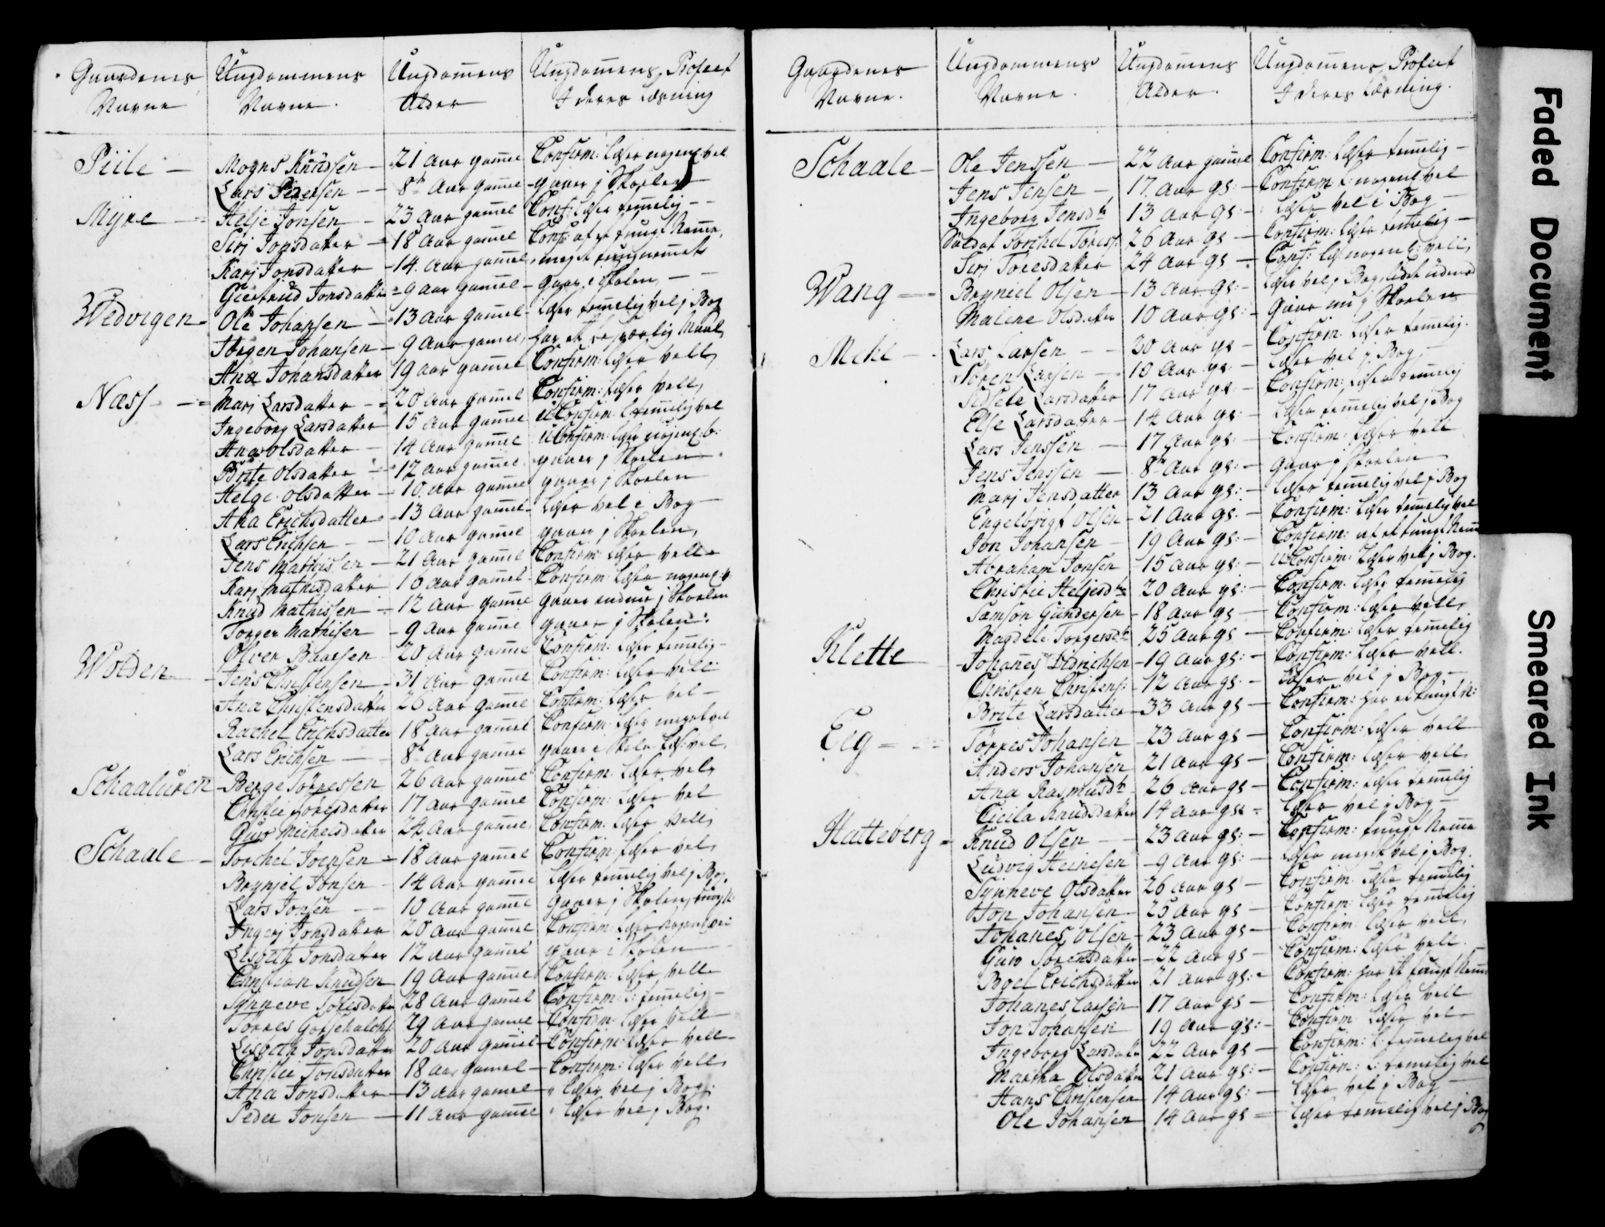 Gaardenes Navne Ungdommens Navne. Ungdomens Alder Ungdomens Profect I deres Læsning
Piile - Mogns Knudsen - 21 Aar gamel Confirm: læser nogenl vel
Lars Pedersen - 8te Aar gamel - gaaer j Skolen
Myre - Helje Jonsen - 23 Aar gamel Conf: læser temelig -
Siri Jonsdatter - 18 Aar gamel Conf: af et tungt Neme,
Karj Jonsdatter - 14 Aar gamel, meget tungnemet
Giertrud Jonsdatter - 9 aar gamel - gaar i Skolen
Wedvigen - Ole Johansen - 13 Aar gamel - læser temelig vel j Bog
Jørgen Johansen - 9 Aar gamel, har et Maal
Ana Johansdatter 19 aar gamel Confirm: læser vell,
Næss - Marj Larsdatter - 20 Aar gamel Confirm: læser vell,
Ingeborg Larsdatter 15 Aar gamel uConfirm: l: temelig vel
Ana olsdatter - 14 Aar gamel uConfirm: læser
Brite olsdatter - 12 Aar gamel gaaer j Skolen
Helge olsdatter - 10 Aar gamel gaaer j Skolen
Ana Erichsdatter - 13 Aar gamel - læser vel i Bog
Lars Erichsen - 10 Aar gamel gaaer j Skolen,
Jens Mathissen - 21 Aar gamel Confirm: læser vell
Karj Mathisdatter 10 Aar gamel Confirm: læser nogenl v:
Knud Mathissen - 12 Aar gamel gaaer endnu j Skolen
Torger Mathisen - 9 Aar gamel gaaer j Skolen:
Olver Baarsen 20 Aar gamel Confirm: læser temelig -
Wolden - Jens Christensen - 31 Aar gamel Confirm: læser vell
Ana Christensdatter 26 Aar gamel Confirm: læser vel -
Rachel Erichsdatter 18 Aar gamel Confirm: læser meget vel
Lars Erichsen - 8te Aar gamel gaaer i Skole læs vel,
Schaaluren - Berge Torressen 26 Aar gamel Confirm: læser vel,
Christie Toresdatter 17 Aar gamel Confirm: læser vel
Guro Michelsdatter 24 Aar gamel Confirm: læser vell,
Schaale - Torchel Joensen - 18 Aar gamel Confirm: læser vel,
Brynjel Jonsen - 14 Aar gamel læser temelig vel j Bog,
Lars Jonsen - 10 Aar gamel Gaaer j Skolen,
Ingerj Jonsdatter 20 Aar gamel Confirm: læser nogenl vel:
Lisbeth Jonsdatter 12 Aar gamel gaaer i Skolen
Christian Knudsen 19 Aar gamel Confirm: læser vell
Synneve Torlesdatter 28 Aar gamel Confirm: l: temelig -
Torres Gotschalchs: 29 Aar gamel - Confirm: læser vell
Lisbeth Jonsdatter 20 Aar gamel - Confirm: læser vell -
Christie Jonsdatter 18 aar gamel - Confirm: læser vell
Ana Jonsdatter - 13 Aar gamel læser vel j Bog:
Peder Jonsen - 11 Aar gamel læser vel j Bog.
Gaardenes Navne. Ungdommens Navne. Ungdomens Alder. Ungdomens Profect I deres Læsning.
Schaale - Ole Jenssen - 22 Aar gamel Confirm: læser temelig -
Jens Jensen - 17 Aar gl: - Confirm l: nogenl vel
Ingeborg Jensdt: 13 Aar gl: - læser vel i Bog -
Torchel Toress: 26 Aar gl - Confirm: læser temelig -
Siri Toresdatter 24 Aar gl - Conf: læs nogenl: vell,
Wang - Bryniel Olsen - 13 Aar gl: - læser vel j Bog, lidet udenad
Malene Olsdatter 10 Aar gl: - Gaar nu j Skolen
Mehl - Lars Larsen - 30 Aar gl - Confirm: læser temelig.
Søren Larsen - 10 Aar gl - læser vel j Bog,
Sidsele Larsdatter 17 Aar gl - Confirm: læser temelig
Else Larsdatter - 14 Aar gl: - læser temelig vel j Bog
Lars Jenssen - 17 Aar gl: - Confirm: læser vell
Jens Jenssen - 8te Aar gl: - gaar j Skolen
Marj Jensdatter 13 Aar gl: - læser temelig vel j Bog
Engelbrigt Olsen - 21 Aar gl: - Confirm: læser temelig vel
Jon Johansen - 19 Aar gl: - Confirm: af et tungt Neme
Abraham Jonsen - 15 Aar gl: - uConfirm: læser vel j Bog.
Christie Heljesdt: 20 Aar gl: - Confirm: læser temelig
Samson Gundersen 18 Aar gl - Confirm: læser vell,
Magdele Torgersdt: 25 Aar gl - Confirm: læser temelig
Klette - Johanes Didrichsen - 19 Aar gl: - Confirm: læser vell.
Christen Christens: 12 Aar gl: - læser vel j Bog -
Brite Larsdatter - 33 Aar gl - Confirm: har et tungt N:
Eeg - Torres Johansen - 23 Aar gl - Confirm: læser vell
Anders Johansen 21 Aar gl - Confirm: læser vell,
Ana Rasmusdt: - 26 Aar gl - Confirm: læser temelig
Cicila Knudsdatter 14 Aar gl: - læser vel j Bog -
Hatteberg - Knud Olsen - 23 Aar gl: - Confirm: tungt Neme
Ludvig Heinesen - 9 Aar gl: - læser meget vel j Bog.
Synneve Olsdatter 26 Aar gl - Confirm: læser temelig
Jon Johansen - 25 Aar gl - Confirm: læser temelig
Johanes Olsen - 23 Aar gl - Confirm: læser vell,
Guro Sorensdatter - 22 Aar gl - Confirm: læser vell.
Boel Erichsdatter 21 Aar gl: - Confirm: har et tungt Neme
Johanes Larsen 17 Aar gl - Confirm: læser vell
Jon Johansen 19 Aar gl: - Confirm læser vel -
Ingeborg Larsdatter 22 Aar gl - Confirm: l: temelig vel
Martha Olsdatter 21 Aar gl: - Confirm: l: temelig vel
Hans Christensen 14 Aar gl: - læser vel j Bog
Ole Johansen 14 Aar gl - læser temelig vel j Bog
Faded Document
Smeared Ink